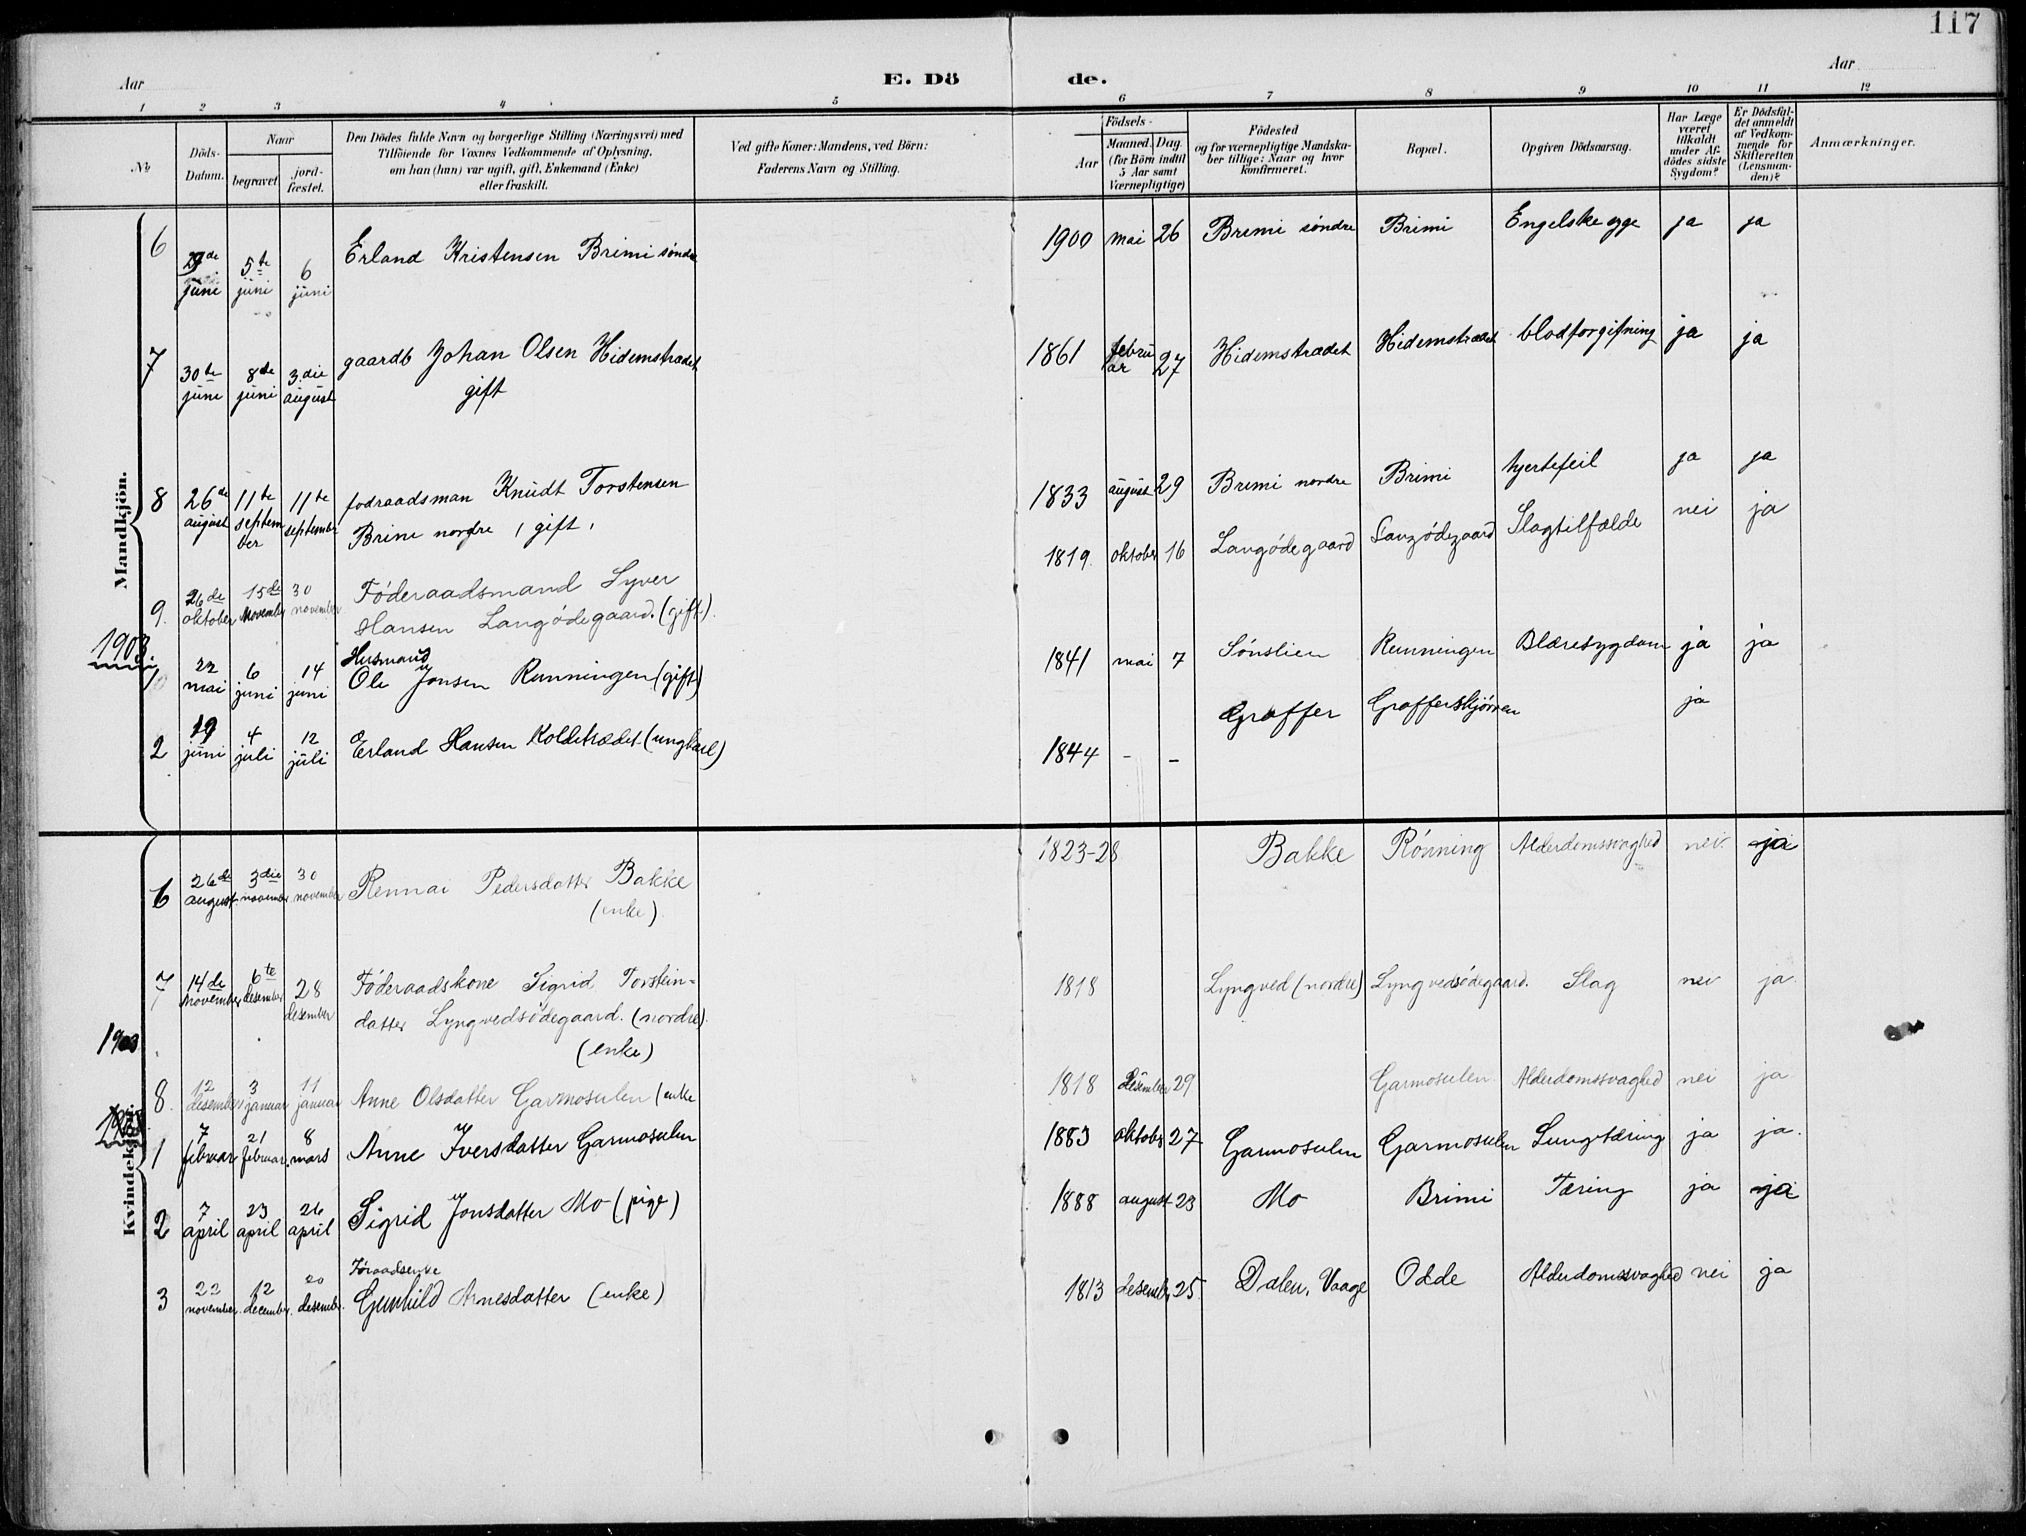 117
Aar
E. Dö de.
Aar
1 2 3 4 5 6 7 8 9 10 11 12
No
Döds-
Datum.
Naar
begravet
jord-
fæstet.
Den Dödes fulde Navn og borgerlige Stilling (Næringsvei) med
Tilföiende for Voxnes Vedkommende af Oplysning,
om han (hun) var ugift, gift, Enkemand (Enke)
eller fraskilt.
Ved gifte Koner: Mandens, ved Börn:
Faderens Navn og Stilling.
Födsels-
Aar
Maaned. Dag.
(for Börn indtil
5 Aar samt
Værnepligtige)
Födested
og for værnepligtige Mandska-
ber tillige: Naar og hvor
konfirmeret.
Bopæl.
Opgiven Dödsaarsag.
Har Læge
været
tilkaldt
under Af-
dödes sidste
Sygdom?
Er Dödsfal-
det anmeldt
af Vedkom-
mende for
Skifteretten
(Lensman-
den)?
Anmærkninger.
Mandkjön.
6 juni 5te juni 6 juni Erland Kristensen Brimi søndre 1900 mai 26 Bremi søndre Brimi Engelske syge ja ja
7 30te juni 8de juni 3die august gaardb Johan Olsen Hidemstrædet
gift
1861 februar 27 Hidemstrædet Hidemstrædet blodforgifning ja ja
8 26de august 11te september 11te september fodraadsman Knudt Torstensen
Brime nordre, gift,
1833 august 29 Bremi nordre Brimi hjertefeil ja ja
9. 26de oktober 15de November 30 november Föderaadsmand Syver
Hansen Langödegaard. (gift).
1819. oktober 16 Langödegaard Langödegaard Slagtilfælde nei ja
1903
22 mai 6 juni 14 juni Husmand
Ole Jonsen Runningen (gift)
1841 mai 7 Sønstlien Runningen Blæresygdom ja ja
2 19 juni 4 juli 12 juli Erland Hansen Koldetrædet (ungkarl) 1844 - - Graffer Grafferskjørren ja
Kvindekjön.
6 26de august 3die november 30 november Rennai Pedersdatter Bakke
(enke).
1823-28 Bakke Rönning Alderdomssvaghed nei ja
7 14de November 6te desember 28 desember Föderaadskone Sigrid Torstein-
datter Lyngvedsödegaard. (nordre).
(enke)
1818 Lyngved (nordre) Lyngvedsödegaard. Slag nei ja
1903
8. 12 desember 3 januar 11 januar Anne Olsdatter Garmosulen (enke 1818 desember 29 Garmosulen Alderdomssvaghed nei ja
1 7 februar 21 februar 8 mars Anne Iversdatter Garmosulen 1883 oktober 27 Garmosulen Garmosulen Lungetæring ja ja.
2 7 april 23 april 26 april Sigrid Jonsdatter Mo (pige) 1888 august 23 Mo Brimi Tæring ja ja
3 22 november 12 december 20 desember. Føraadsenke
Gunhild Arnesdatter (enke)
1813 desember 25. Dalen, Vaage Odde Alderdomssvaghed nei ja